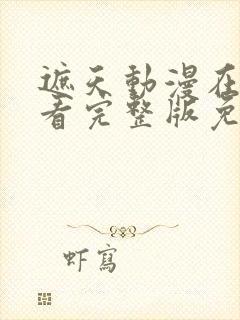 遮天動漫在
看完整版免
虾寫